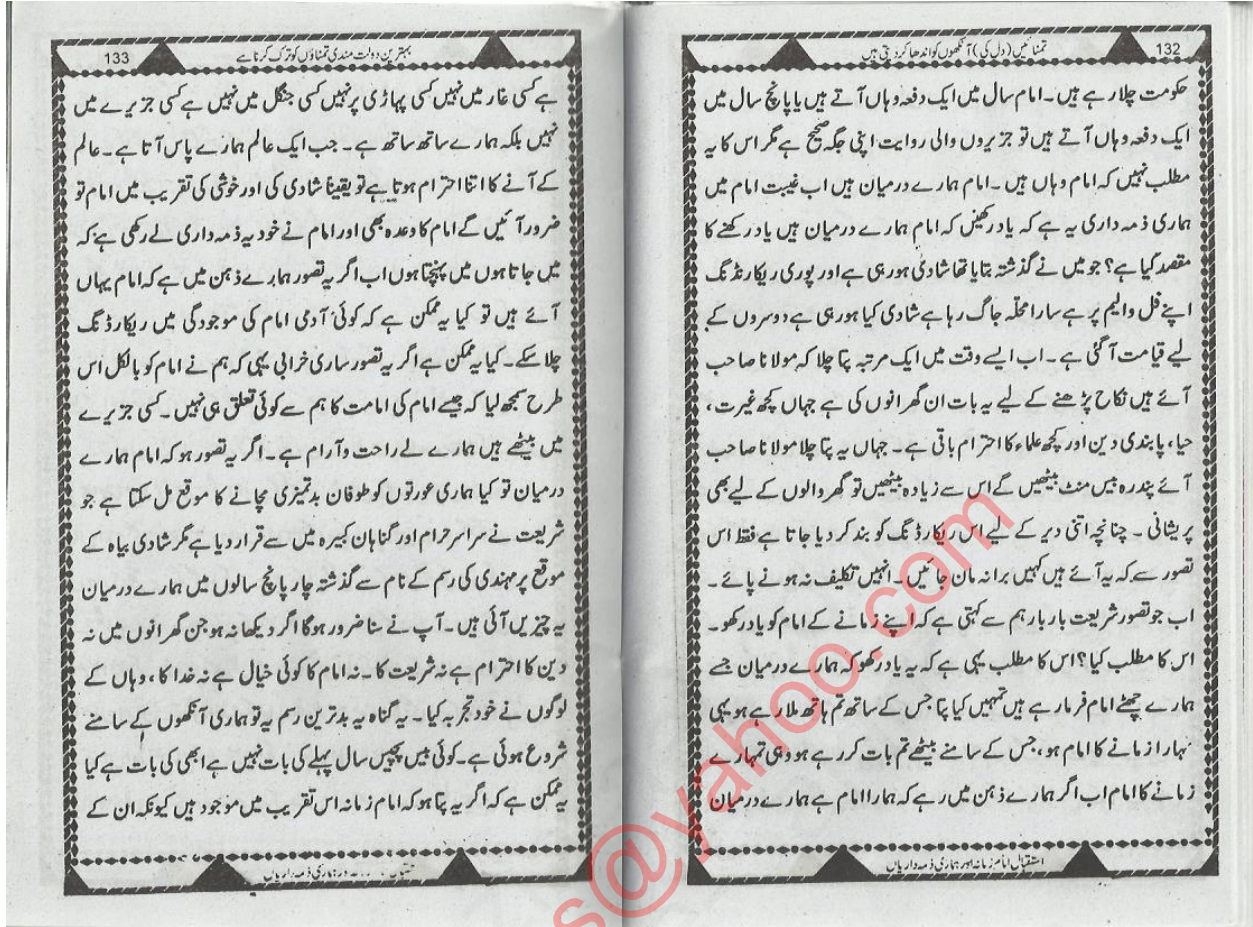 132
تمنائیں (دل کی) آنکھوں کو اندھا کر دیتی ہیں
حکومت چلا رہے ہیں۔ امام سال میں ایک دفعہ وہاں آتے ہیں یا پانچ سال میں
ایک دفعہ وہاں آتے ہیں تو جزیروں والی روایت اپنی جگہ صحیح ہے مگر اس کا یہ
مطلب نہیں کہ امام وہاں ہیں۔ امام ہمارے درمیان ہیں اب غیبت امام میں
ہماری ذمہ داری یہ ہے کہ یاد رکھیں کہ امام ہمارے درمیان ہیں یاد رکھنے کا
مقصد کیا ہے؟ جو میں نے گذشتہ بتایا تھا شادی ہو رہی ہے اور پوری ریکارڈنگ
اپنے فل والیم پر ہے سارا محلّہ جاگ رہا ہے شادی کیا ہو رہی ہے دوسروں کے
لیے قیامت آگئی ہے۔ اب ایسے وقت میں ایک مرتبہ پتا چلا کہ مولانا صاحب
آئے ہیں نکاح پڑھنے کے لیے یہ بات ان گھرانوں کی ہے جہاں کچھ غیرت،
حیا، پابندی دین اور کچھ علماء کا احترام باقی ہے۔ جہاں یہ پتا چلا مولانا صاحب
آئے پندرہ بیس منٹ بیٹھیں گے اس سے زیادہ بیٹھیں تو گھر والوں کے لیے بھی
پریشانی۔ چنانچہ اتنی دیر کے لیے اس ریکارڈنگ کو بند کر دیا جاتا ہے فقط اس
تصور سے کہ یہ آئے ہیں کہیں برا نہ مان جائیں۔ انہیں تکلیف نہ ہونے پائے۔
اب جو تصور شریعت بار بار ہم سے کہتی ہے کہ اپنے زمانے کے امام کو یاد رکھو۔
اس کا مطلب کیا؟ اس کا مطلب یہی ہے کہ یہ یاد رکھو کہ ہمارے درمیان جسے
ہمارے چھٹے امام فرما رہے ہیں تمہیں کیا پتا جس کے ساتھ تم ہاتھ ملا رہے ہو یہی
تمہارا زمانے کا امام ہو، جس کے سامنے بیٹھے تم بات کر رہے ہو وہی تمہارے
زمانے کا امام اب اگر ہمارے ذہن میں رہے کہ ہمارا امام ہے ہمارے درمیان
استقبال امام زمانہ اور ہماری ذمہ داریاں
133
بہترین دولت مندی تمناؤں کو ترک کرنا ہے
ہے کسی غار میں نہیں کسی پہاڑی پر نہیں کسی جنگل میں نہیں ہے کسی جزیرے میں
نہیں بلکہ ہمارے ساتھ ساتھ ہے۔ جب ایک عالم ہمارے پاس آتا ہے۔ عالم
کے آنے کا اتنا احترام ہوتا ہے تو یقیناً شادی کی اور خوشی کی تقریب میں امام تو
ضرور آئیں گے امام کا وعدہ بھی اور امام نے خود یہ ذمہ داری لے رکھی ہے کہ
میں جاتا ہوں میں پہنچتا ہوں اب اگر یہ تصور ہمارے ذہن میں ہے کہ امام یہاں
آئے ہیں تو کیا یہ ممکن ہے کہ کوئی آدمی امام کی موجودگی میں ریکارڈنگ
چلا سکے۔ کیا یہ ممکن ہے اگر یہ تصور ساری خرابی یہی کہ ہم نے امام کو بالکل اس
طرح سمجھ لیا کہ جیسے امام کی امامت کا ہم سے کوئی تعلق ہی نہیں۔ کسی جزیرے
میں بیٹھے ہیں ہمارے لے راحت و آرام ہے۔ اگر یہ تصور ہو کہ امام ہمارے
درمیان تو کیا ہماری عورتوں کو طوفان بدتمیزی مچانے کا موقع مل سکتا ہے جو
شریعت نے سراسر حرام اور گناہان کبیرہ میں سے قرار دیا ہے مگر شادی بیاہ کے
موقع پر مہندی کی رسم کے نام سے گذشتہ چار پانچ سالوں میں ہمارے درمیان
یہ چیزیں آئی ہیں۔ آپ نے سنا ضرور ہوگا اگر دیکھا نہ ہو جن گھرانوں میں نہ
دین کا احترام ہے نہ شریعت کا۔ نہ امام کا کوئی خیال ہے نہ خدا کا، وہاں کے
لوگوں نے خود تجربہ کیا۔ یہ گناہ یہ بدترین رسم یہ تو ہماری آنکھوں کے سامنے
شروع ہوئی ہے۔ کوئی بیس پچیس سال پہلے کی بات نہیں ہے ابھی کی بات ہے کیا
یہ ممکن ہے کہ اگر یہ پتا ہو کہ امام زمانہ اس تقریب میں موجود ہیں کیونکہ ان کے
ہماری ذمہ داریاں
s@yahoo.com